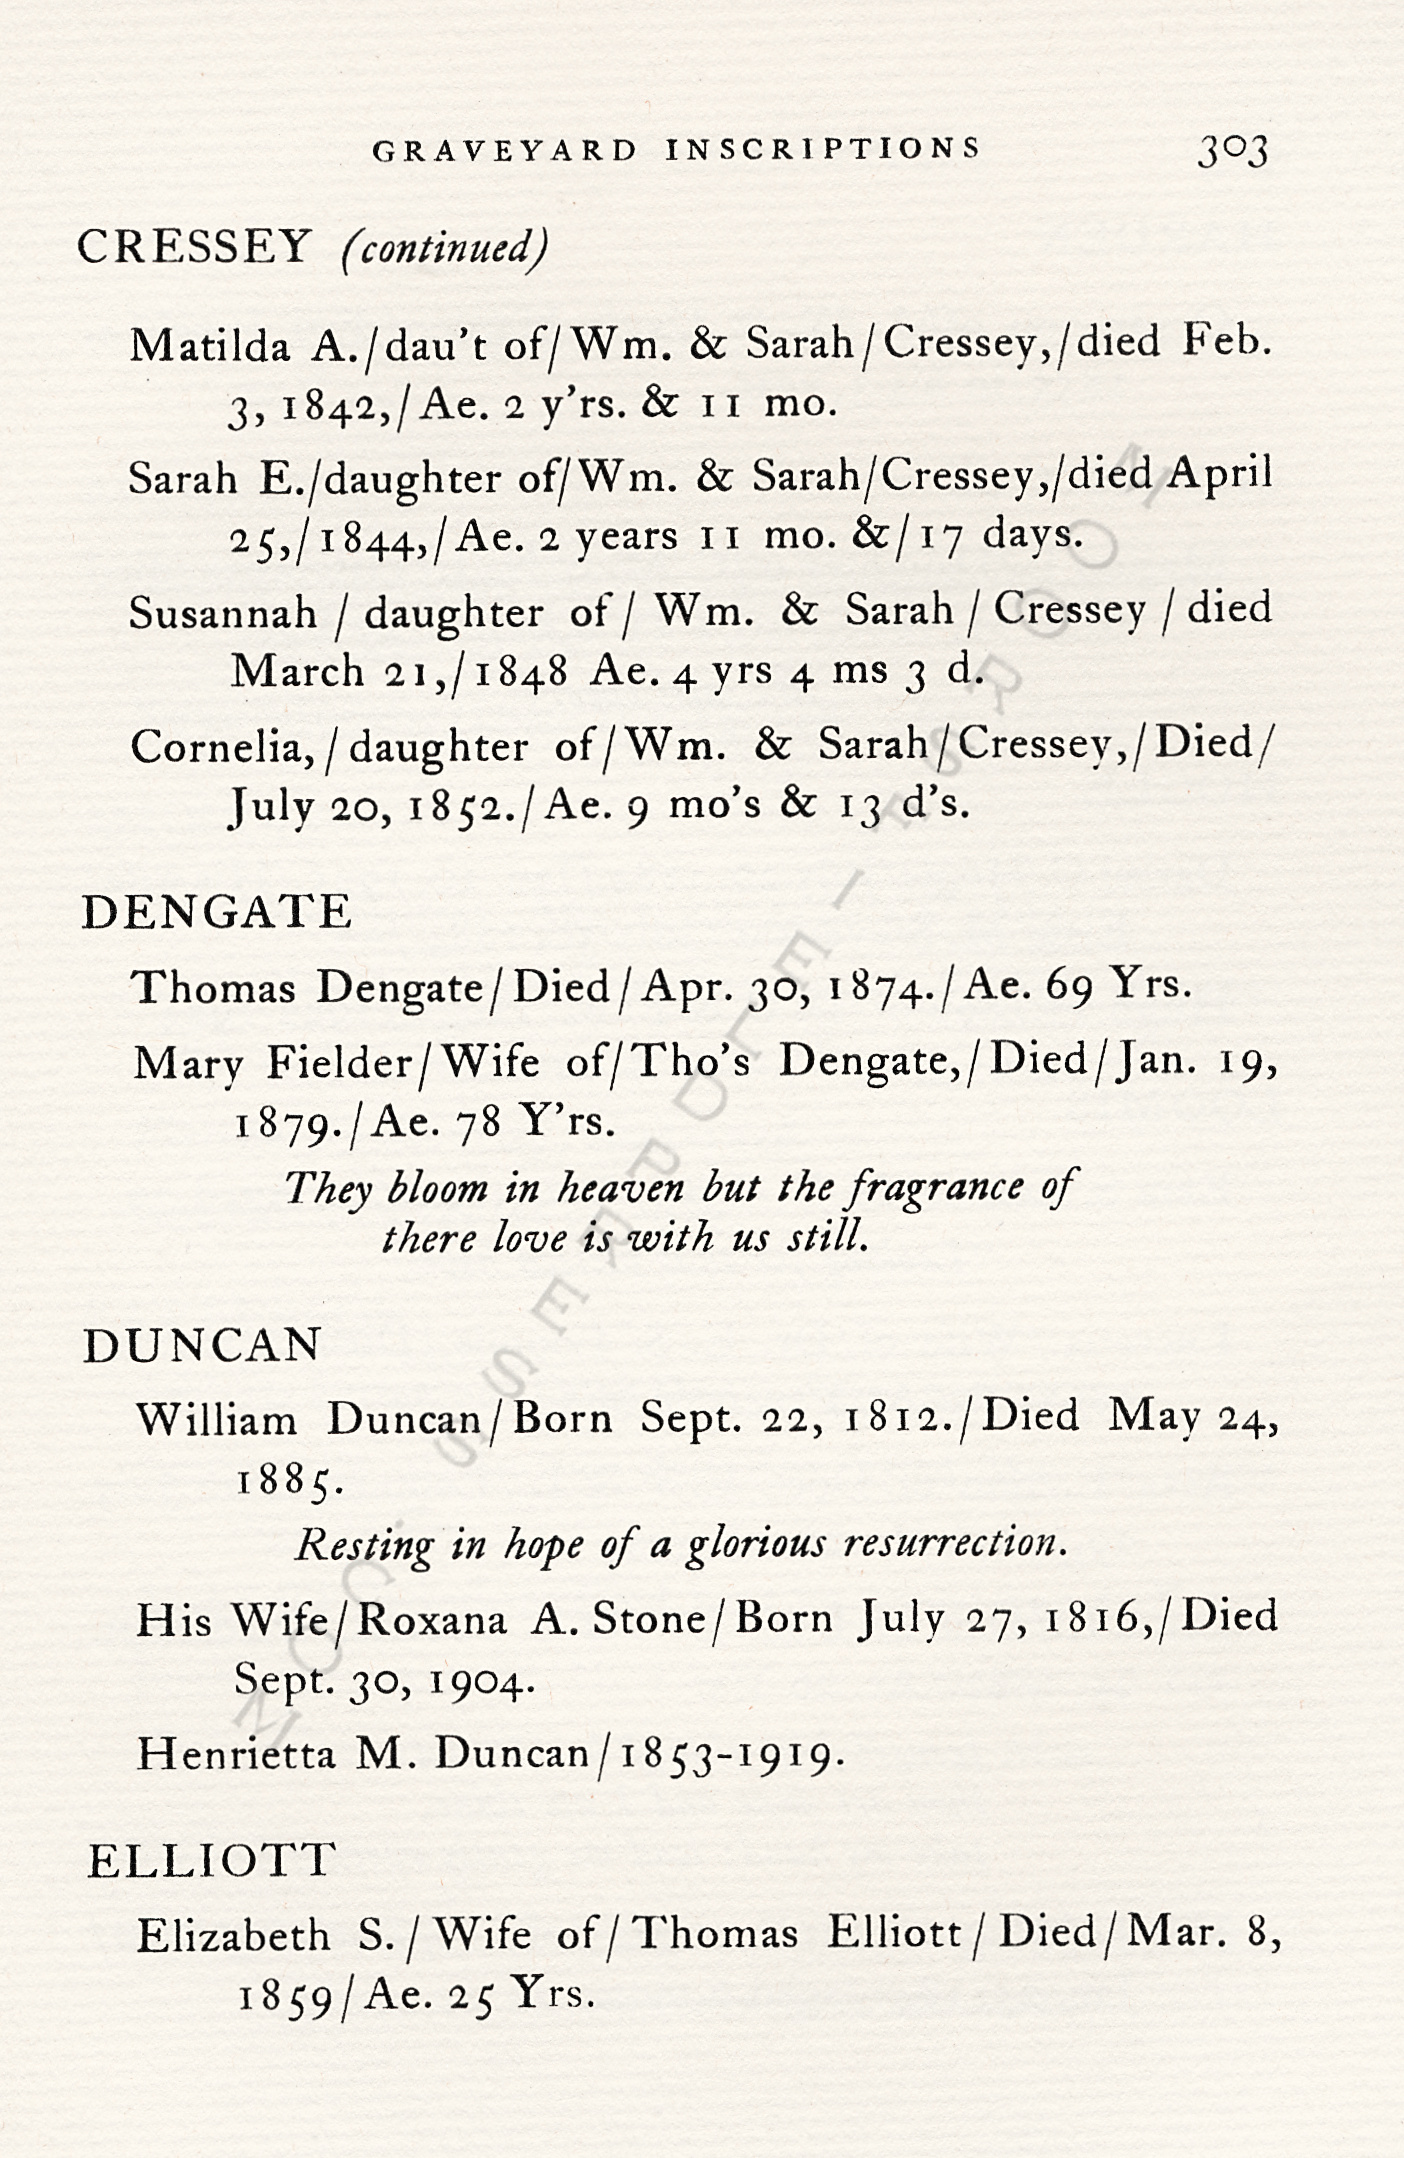 GRAVEYARD INSCRIPTIONS 303
CRESSEY (continued)
Matilda A./dau't of/Wm. & Sarah/Cressey,/died Feb.
3, 1842,/Ae. 2 y'rs. & 11 mo.
Sarah E./daughter of/Wm. & Sarah/Cressey,/died April
25,/1844,/Ae. 2 years 11 mo. &/17 days.
Susannah / daughter of / Wm. & Sarah / Cressey / died
March 21,/1848 Ae. 4 yrs 4 ms 3 d.
Cornelia, / daughter of/Wm. & Sarah/Cressey,/Died/
July 20, 1852./Ae. 9 mo's & 13 d's.
DENGATE
Thomas Dengate/Died/Apr. 30, 1874./Ae. 69 Yrs.
Mary Fielder/Wife of/Tho's Dengate,/Died/Jan. 19,
1879./Ae. 78 Y'rs.
They bloom in heaven but the fragrance of
there love is with us still.
DUNCAN
William Duncan/Born Sept. 22, 1812./Died May 24,
1885.
Resting in hope of a glorious resurrection.
His Wife/Roxana A. Stone/Born July 27, 1816,/Died
Sept. 30, 1904.
Henrietta M. Duncan/1853-1919.
ELLIOTT
Elizabeth S. / Wife of / Thomas Elliott / Died/Mar. 8,
1859/Ae. 25 Yrs.